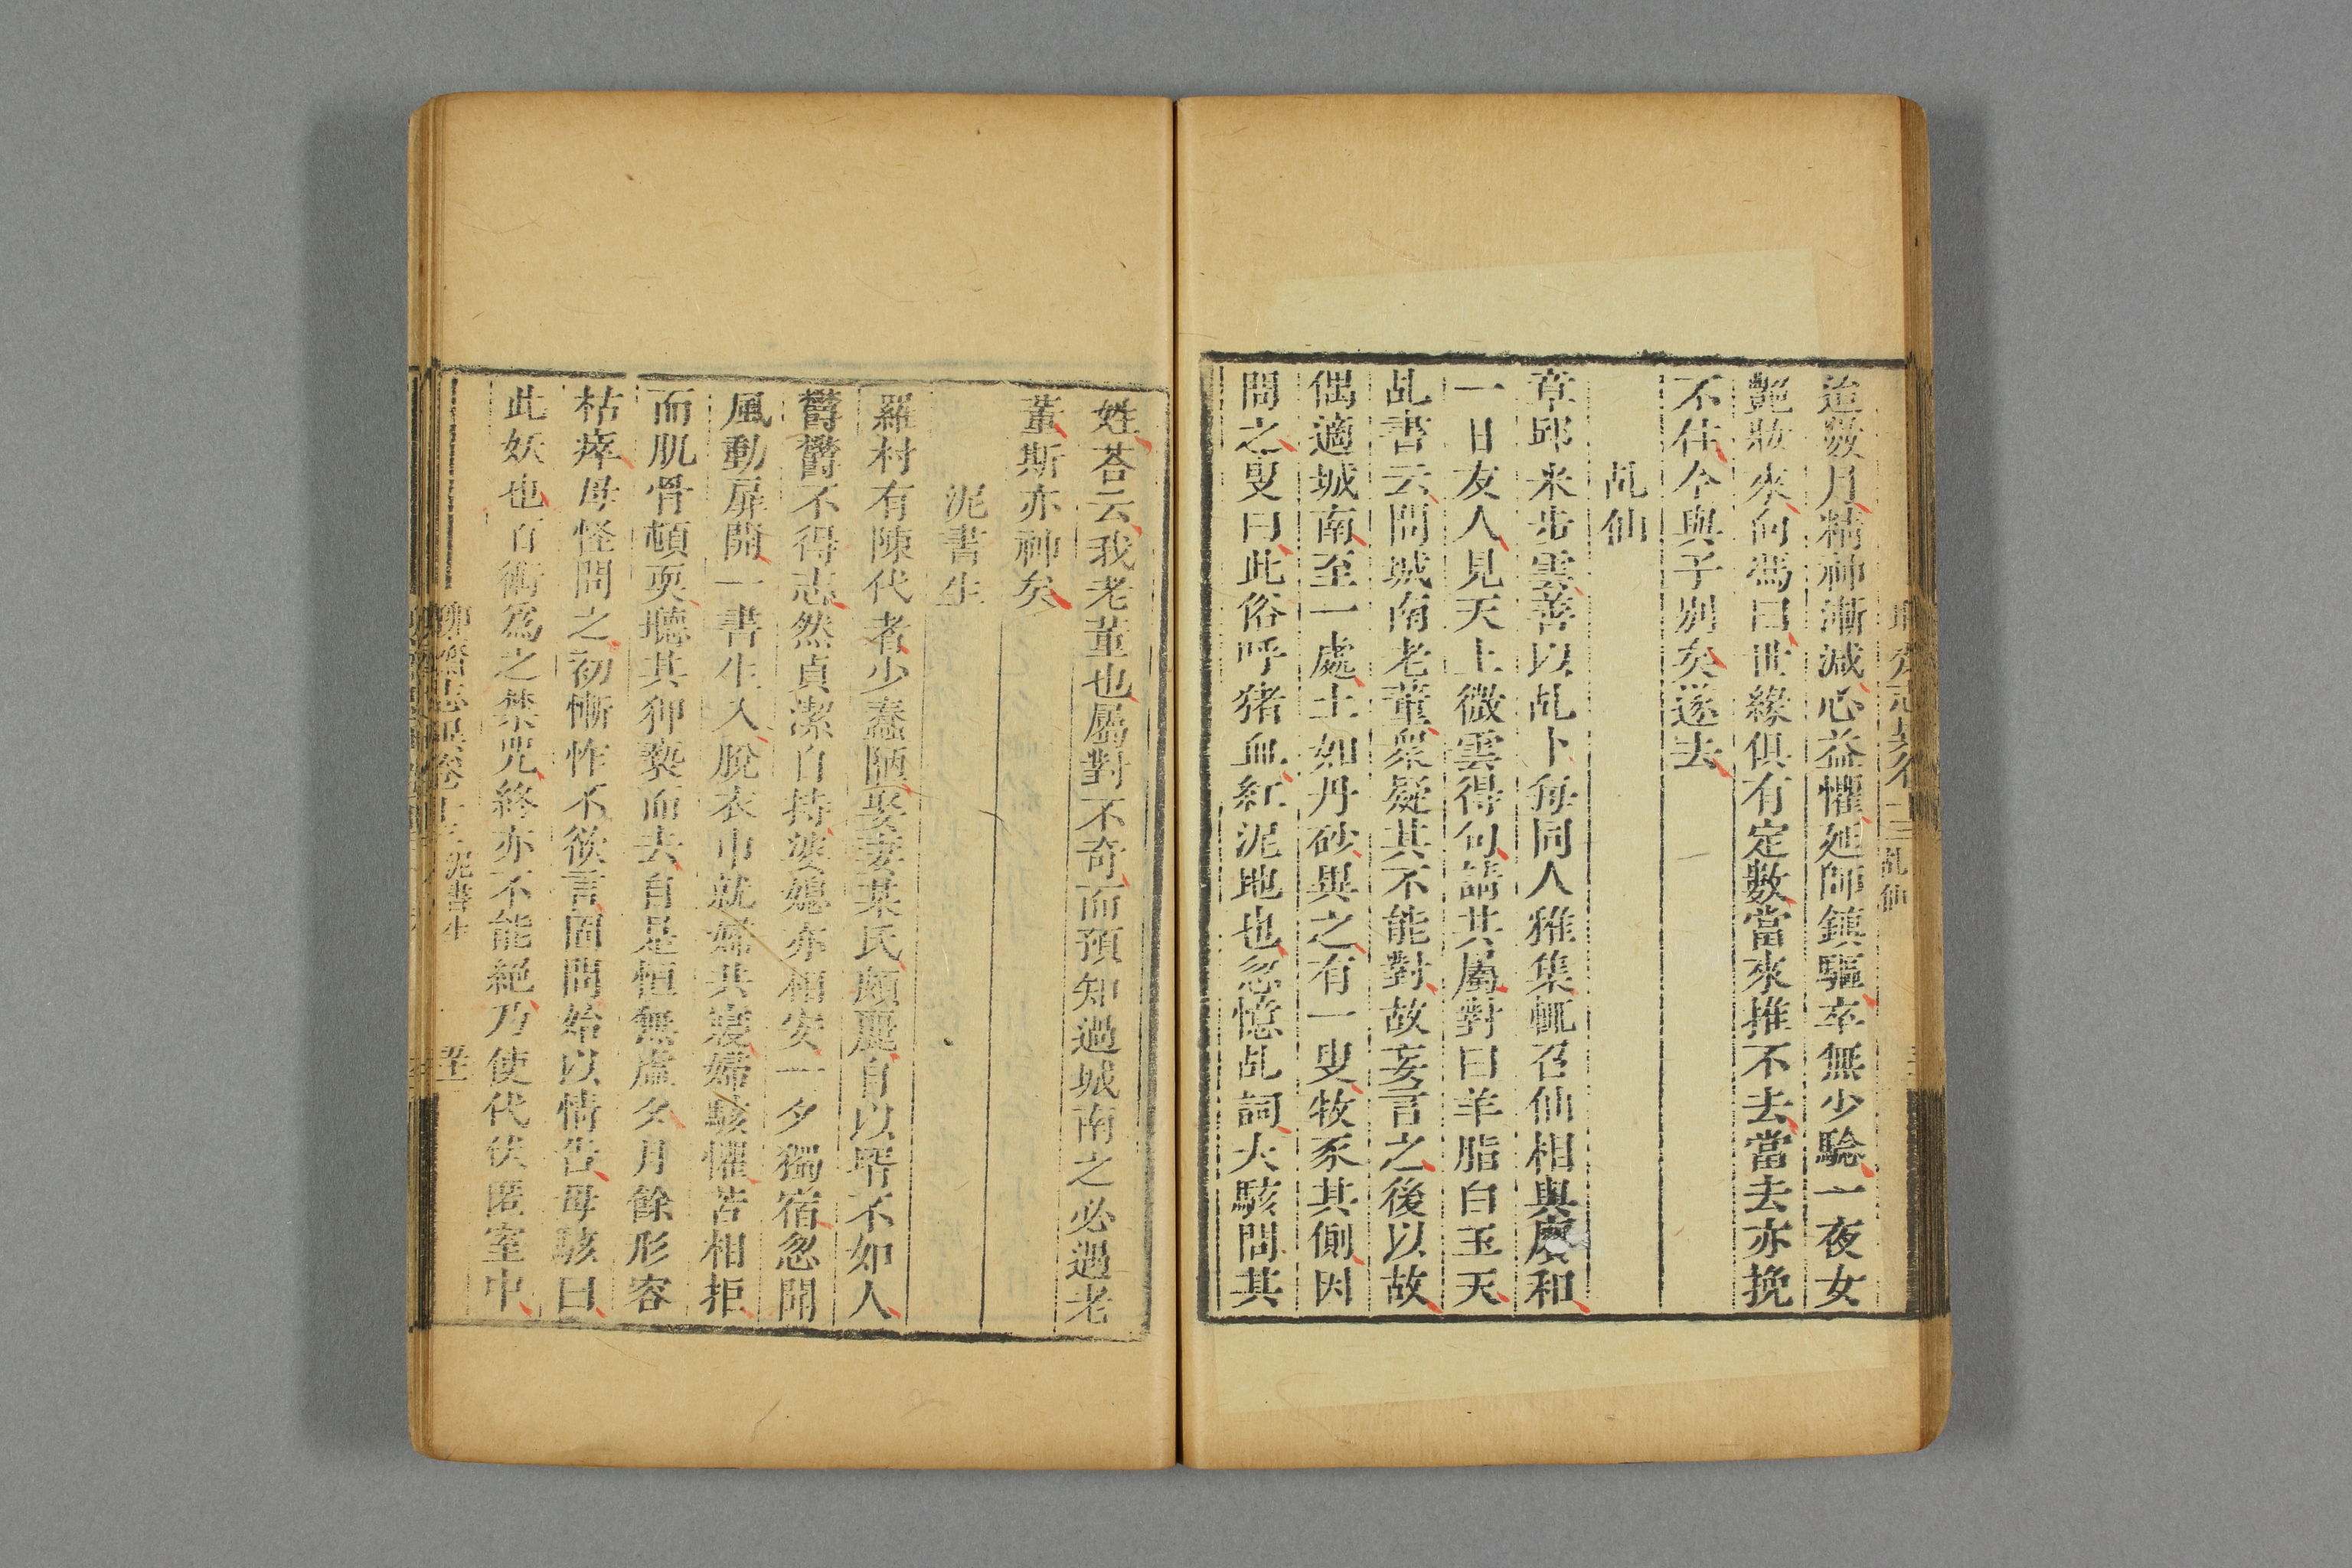 迨數月精神漸減心益懼延師鎮驅卒無少驗一夜女
艷妝來向馮曰世緣俱有定數當來推不去當去亦挽
不住今與子別矣遂去
乩仙
章邱米步雲善以乩卜每同人雅集輒召仙相與賡和
一日友人見天上微雲得句請其屬對曰羊脂白玉天
乩書云問城南老董衆疑其不能對故妄言之後以故
偶適城南至一處土如丹砂異之有一叟牧豕其側因
問之叟曰此俗呼猪血紅泥地也忽憶乩詞大駭問其
姓荅云我老董也屬對不奇而預知過城南之必遇老
董斯亦神矣
泥書生
羅村有陳代者少蠢陋娶妻某氏頗麗自以壻不如人
鬱鬱不得志然貞潔自持婆媳亦相安一夕獨宿忽聞
風動扉開一書生入脫衣巾就婦共寢婦駭懼苦相拒
而肌骨頓耎聽其狎褻而去自是恒無虛夕月餘形容
枯瘁母怪問之初慚怍不欲言固問始以情告母駭曰
此妖也百術為之禁咒終亦不能絕乃使代伏匿室中
聊齋志異卷十三 泥書生